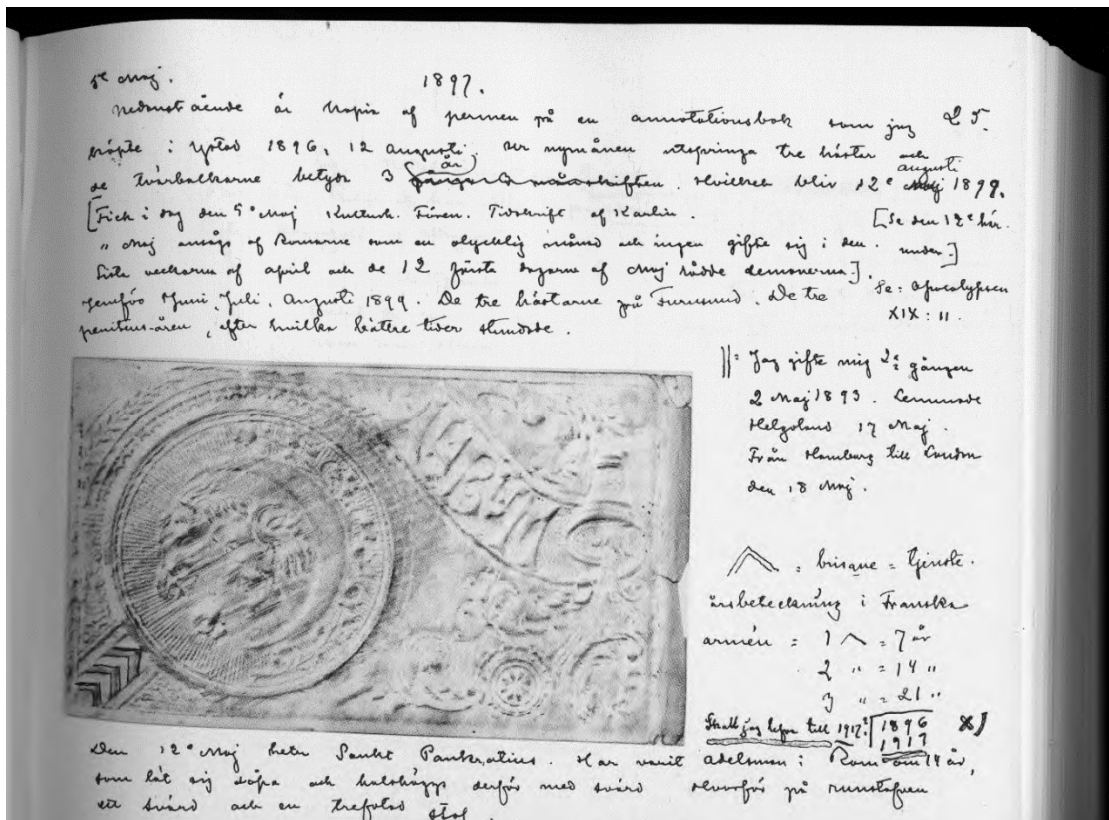 5e Maj. 1897.
Nedanstående är kopia af permen på en annotationsbok som jag
köpte i Ystad 1896, 12 Augusti. Ur nymånen utspringa tre hästar och
de tvärbalkarne betyda 3 år. Hvilket blir 12e Augusti 1899.
[Fick i dag den 5e Maj Kulturh. Fören. Tidskrift af Karlin. [Se den 12e här.
" Maj ansågs af Romarne som en olycklig månad och ingen gifte sig i den. under.]
Sista veckorna af April och de 12 första dagarne af Maj rådde demonerna.].
Jemför Juni, Juli, Augusti 1899. De tre hästarne på Furusund. De tre Se: Apocalypsen
penitens-åren, efter hvilka bättre tider stundade. XIX: 11.
||= Jag gifte mig 2a gången
2 Maj 1893. Lemnade
Helgoland 17 Maj.
Från Hamburg till London
den 18 Maj.
= brisque = tjenste-
årsbeteckning i Franska
armén = 1 ^ = 7 år
2 " = 14 "
3 " = 21 "
Skall jag lefva till 1917? 1896 X)
1917
Den 12e Maj heter Sankt Pankratius. Har varit adelsman i Rom om 14 år,
som lät sig döpa och halshöggs derför med svärd Hvarför på runstafven
ett svärd och en trefotad stol.